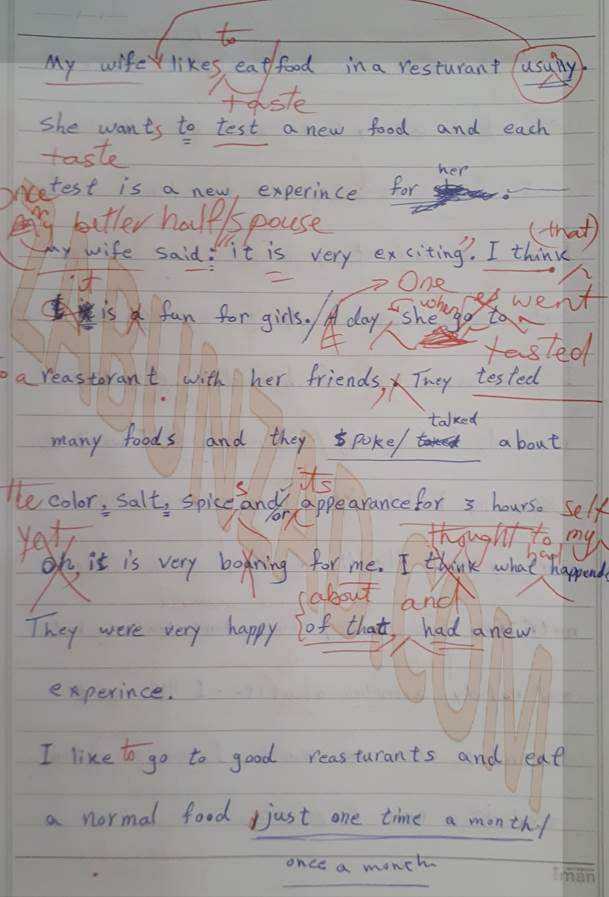 to
My wife likes eat food in a resturant usually.
taste
She wants to test a new food and each
taste
test is a new experince for her.
my better half/spouse
(that)
my wife said: "it is very exciting". I think
it
One
when
went
is a fun for girls. / A day she go to
tasted
a reastorant. with her friends, They tested
talked
many foods and they spoke/ about
the color, salt, spices and/or its appearance for 3 hours. self
Yet,
thought to my
had
oh, it is very boorning for me. I think what happend
about and
They were very happy of that, had a new
experince.
I like to go to good reasturants and eat
a normal food, just one time a month/
once a month
LABUNZAD.COM
Iman